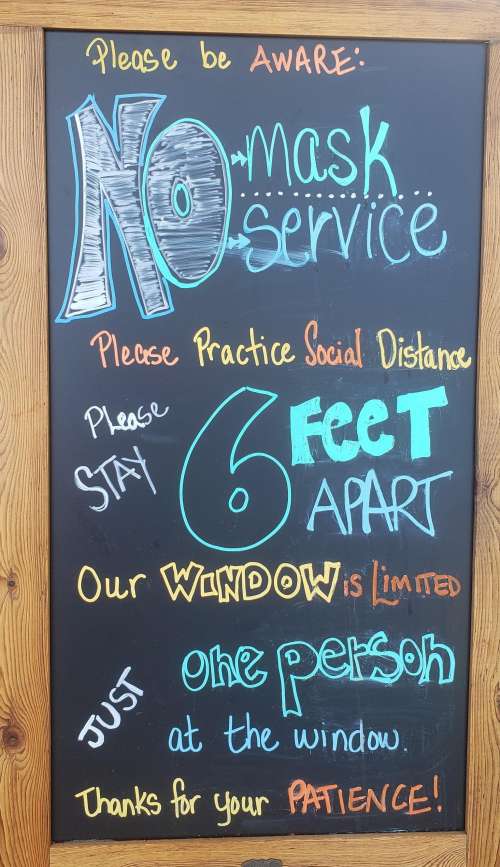 Please be AWARE:
NO mask
service
Please Practice Social Distance
Please STAY 6 FEET APART
Our WINDOW is LIMITED
JUST one person
at the window.
Thanks for your PATIENCE!